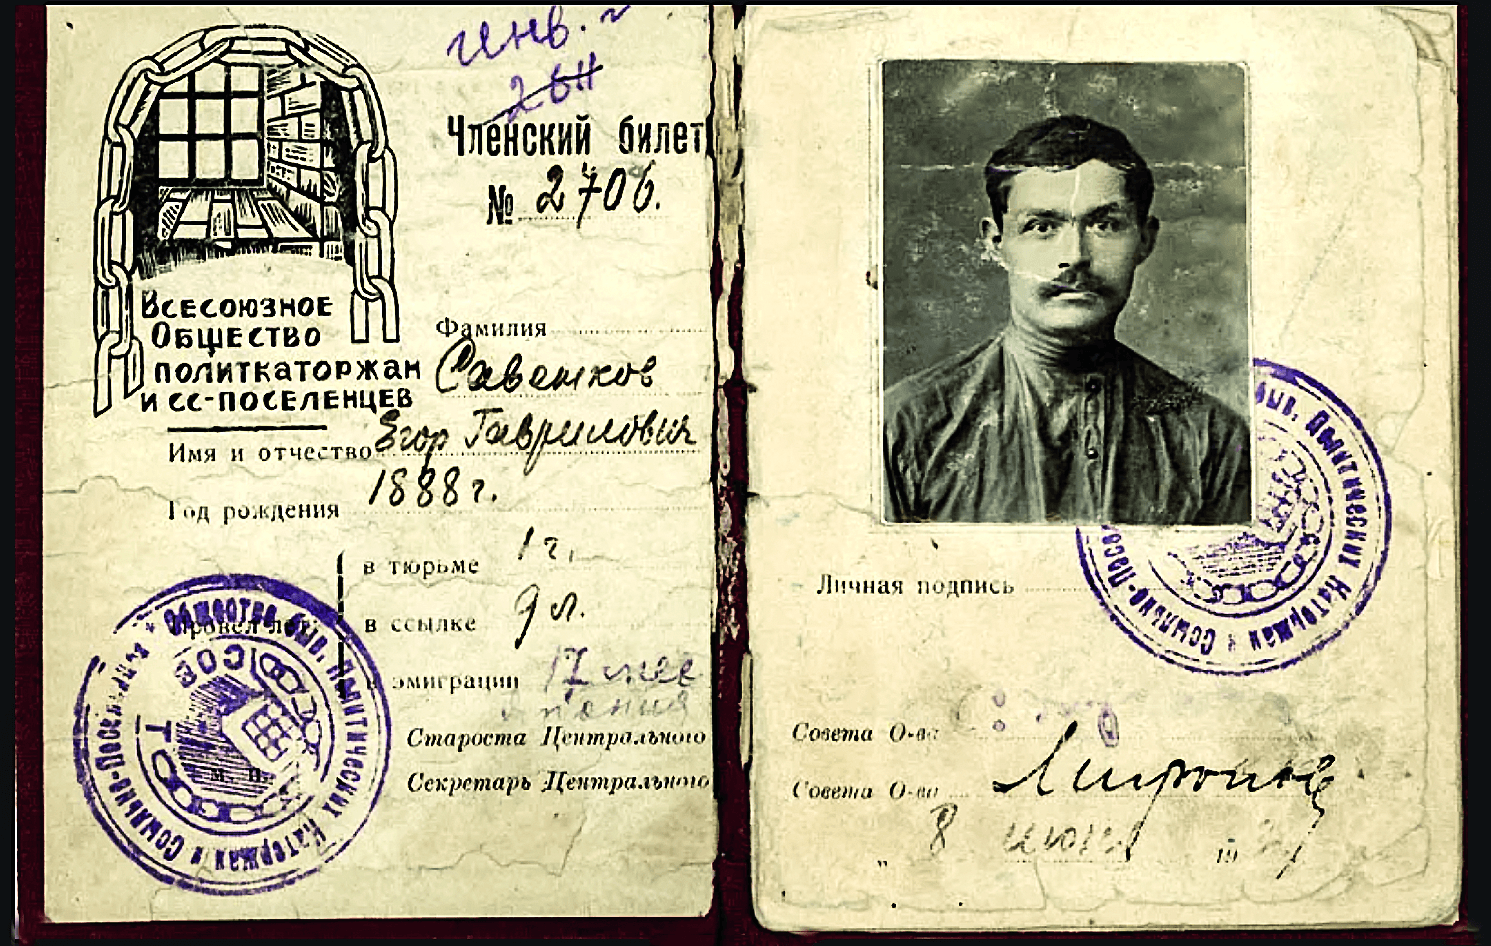 Инв. №
2611
Членский билет
№ 2706.
Всесоюзное
Общество
политкаторжан
и сс-поселенцев
Фамилия
Савенков
Имя и отчество Егор Гаврилович
Год рождения 1888 г.
Провел лет:
в тюрьме 1 г.
в ссылке 9 л.
в эмиграции 17 мес
Староста Центрального
Секретарь Центрального
М. П.
Общество быв. Политических Каторжан и Ссыльно-Посел
СОВ
Личная подпись
быв. Политических Каторжан и Ссыльно-Посел
Совета О-ва
Совета О-ва
„ 8 июня 19